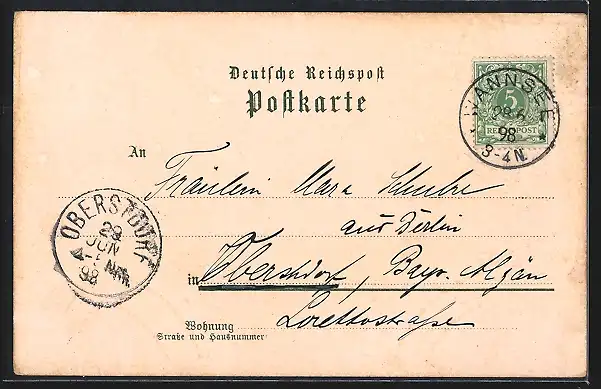 Deutsche Reichspost
Postkarte
WANNSEE
28.6.
98
3-4N.
5
REICHSPOST
An
Fräulein Mara Schulze
aus Berlin
in Oberstdorf, Bayr. Algäu
Lorettostraße
Wohnung
Straße und Hausnummer
OBERSTDORF
29
JUN
4-5 NM
98